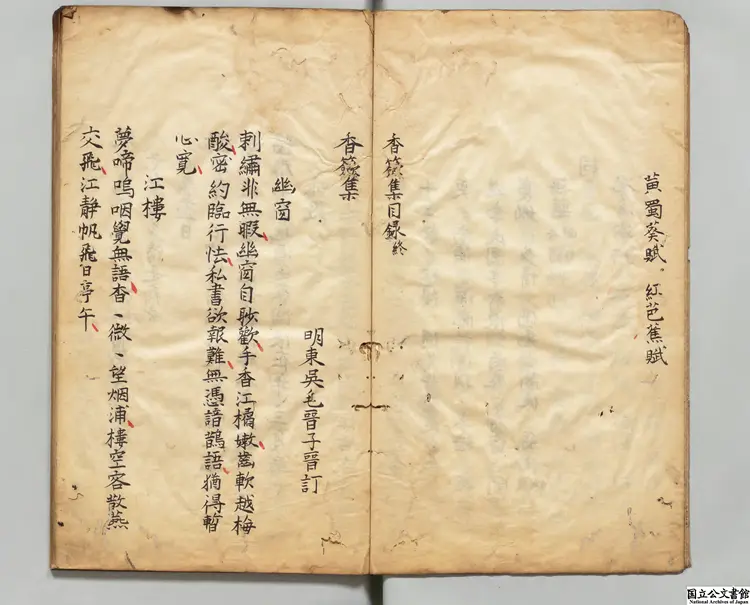 黄蜀葵賦。紅芭蕉賦
香籢集目録終
香籢集
明東吳毛晉子晉訂
幽窗
刺繡非無暇幽窗自眇歡手香江橘嫩齒軟越梅
酸密約臨行怯私書欲報難無憑諳鵲語猶得暫
心寬
江樓
夢啼嗚咽覺無語杳〻微〻望烟浦樓空客散燕
交飛江靜帆飛日亭午
国立公文書館
National Archives of Japan